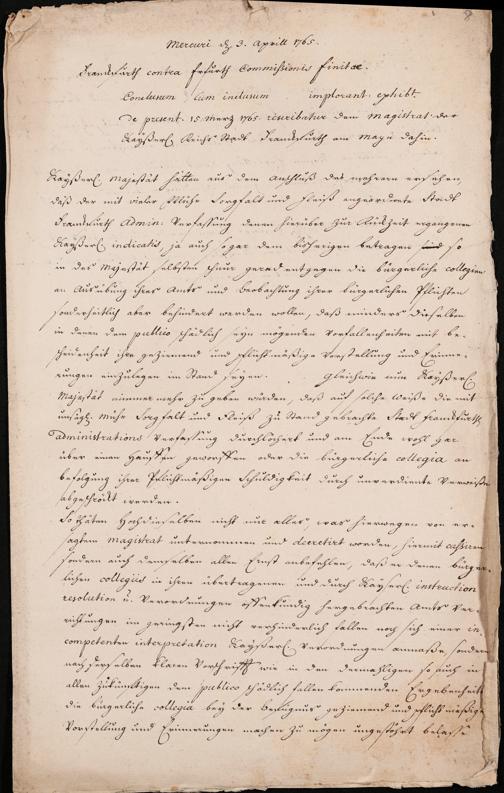 Mercurij d. 3. Aprill 1765.
Franckfurth contra Erfurth Commissionis finitae.
Conclusum cum inclusum implorant. exhibt
de praesent. 15 Mertz 1765 rescribatur dem Magistrat der
Kayßerl. Reichs Stadt Franckfurth am Mayn dahin.
Kayßerl. Majestät hätten aus dem Anschluß des mehrern ersehen,
daß der mit vieler Sorgfalt und Fleiß angeordnete Stadt
Franckfurth Admin: Verfassung denen hierüber zur ergangenen
Kayßerl. indicatis, ja auch sogar dem bißherigen betragen so
in des Majestät selbsten schnur gerad entgegen die bürgerliche collegien
an Ausübung ihres Amts und Beobachtung ihrer bürgerlichen Pflichten
aber behindert werden wollen, daß dieselben
in denen dem publico schädlich seyn mögenden Vorfallenheiten mit be-
scheidenheit ihre geziemend und pflichtmäßige Vorstellung und Erinne-
rungen einzulegen im Stand seyen. Gleichwie nun Kayßerl.
Majestät nimmermehr zugeben würden, daß auf solche Weiße die mit
Mühe Sorgfalt und Fleiß zu Stand gebrachte Stadt Franckfurth.
administrations Verfassung durchlöchert und am Ende wohl gar
über einen Hauffen geworffen oder die bürgerliche collegia an
befolgung ihrer Pflichtmäßigen Schuldigkeit durch unverdiente Verweiße
abgeschröckt werden.
So thäten Hochdieselben nicht nur alles, was hierwegen von er-
sagtem Magistrat unternommen und decretirt worden, hiermit cassiren
sondern auch demselben allen Ernst anbefehlen, daß er denen bürger-
lichen collegiis in ihren übertragenen und durch Kayßerl. instruction
resolution u. Verordnungen offenkündig hergebrachten Amts Ver-
richtungen im geringsten nicht verhinderlich fallen noch sich einer in-
competenten interpretation Kayßerl. Verordnungen anmaße, sondern
nach derselben klaren Vorschrifft wie in den dermahligen so auch in
allen zukünfftigen dem publico schädlich fallen kommenden Begebenheiten
die bürgerliche collegia bey der Befugnus geziemend und pflichtmäßige
Vorstellung und Erinnerungen machen zu mögen ungestöhrt belasse